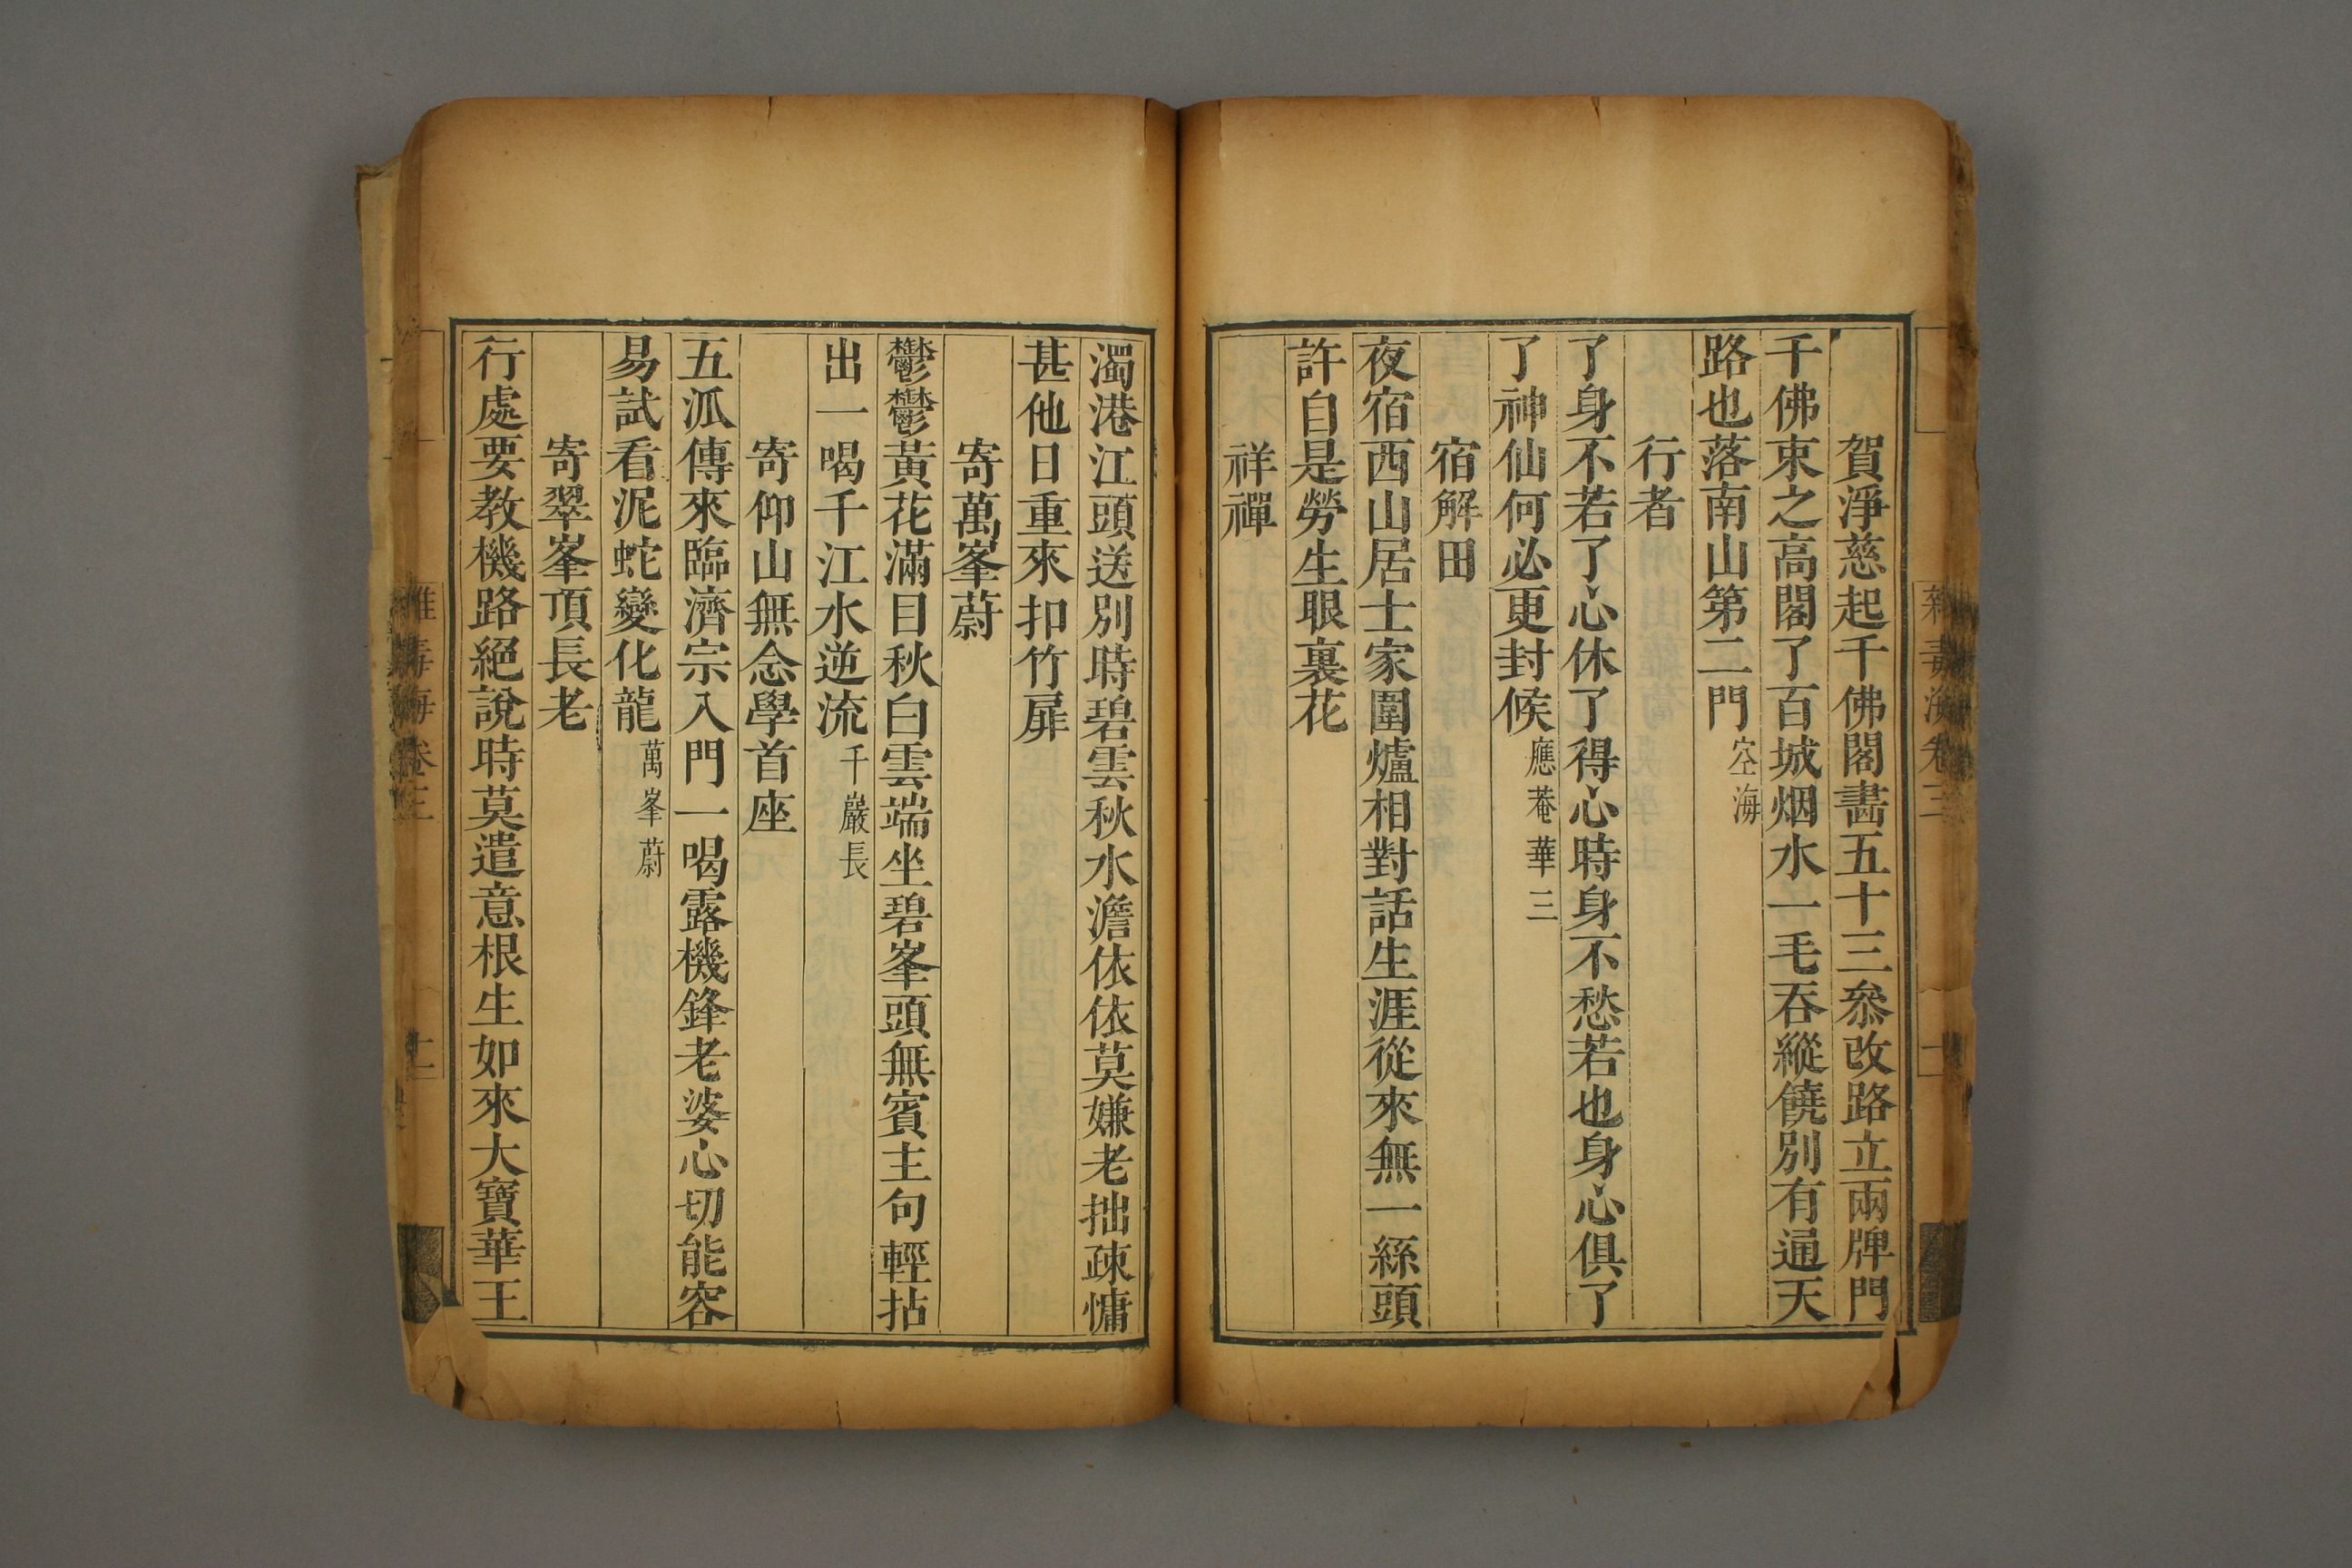 賀淨慈起千佛閣畵五十三叅改路立兩牌門
千佛束之高閣了百城烟水一毛吞縱饒別有通天
路也落南山第二門 空海
行者
了身不若了心休了得心時身不愁若也身心俱了
了神仙何必更封候 應菴華三
宿解田
夜宿西山居士家圍爐相對話生涯從來無一絲頭
許自是勞生眼裏花
祥禪
濁港江頭送別時碧雲秋水澹依依莫嫌老拙疎慵
甚他日重來扣竹扉
寄萬峯蔚
鬱鬱黃花滿目秋白雲端坐碧峯頭無賓主句輕拈
出一喝千江水逆流 千巖長
寄仰山無念學首座
五派傳來臨濟宗入門一喝露機鋒老婆心切能容
易試看泥蛇變化龍 萬峯蔚
寄翠峯頂長老
行處要教機路絕說時莫遣意根生如來大寶華王